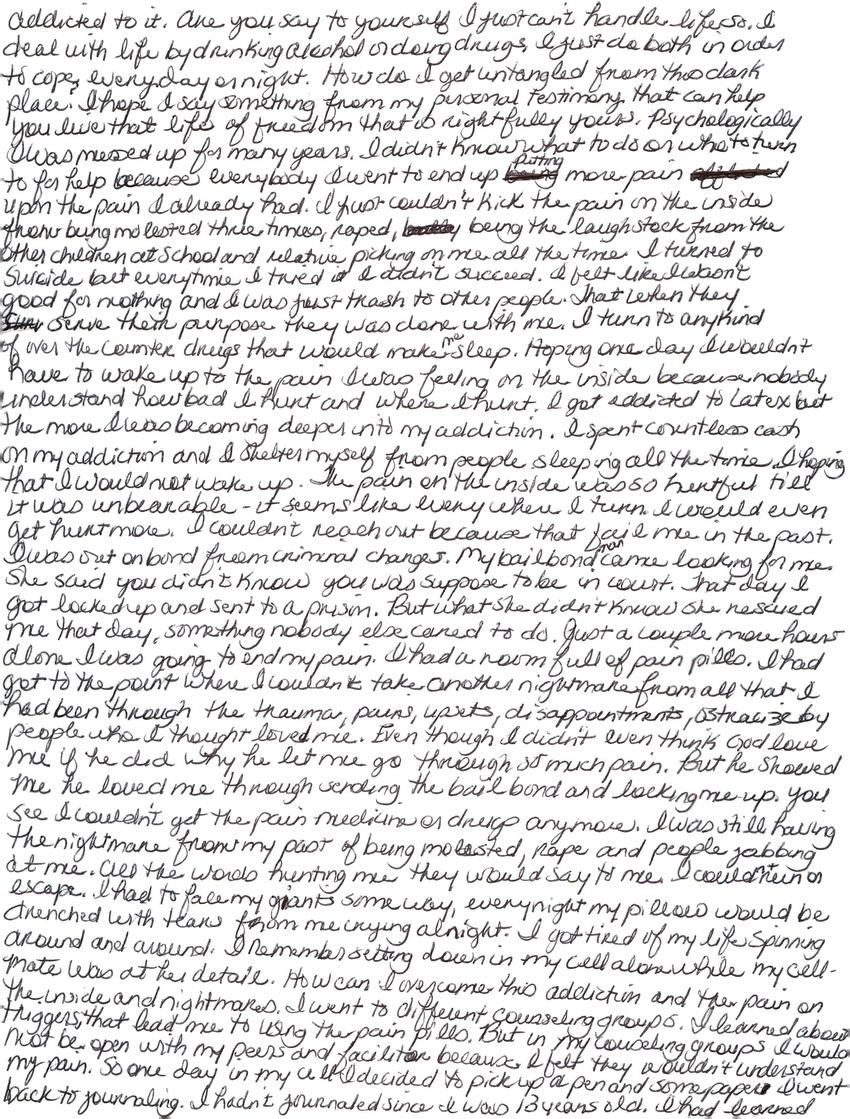 addicted to it. Are you say to yourself I just can't handle life so. I
deal with life by drinking alcohol or doing drugs. I just do both in order
to cope, everyday or night. How do I get untangled from this dark
place. I hope I say something from my personal Testimony that can help
you live that life of freedom that is rightfully yours. Psychologically
I was messed up for many years. I didn't know what to do or who to turn
to for help because everybody I went to end up putting more pain
upon the pain I already had. I just couldn't kick the pain on the inside
from being molested three times, raped, being the laughstock from the
other children at school and relative picking on me all the time. I turned to
Suicide but everytime I tried it I didn't succeed. I felt like I wasn't
good for nothing and I was just trash to other people. That when they
serve their purpose they was done with me. I turn to anykind
of over the counter drugs that would make me sleep. Hoping one day I wouldn't
have to wake up to the pain I was feeling on the inside because nobody
understand how bad I hurt and where I hurt. I got addicted to Latex but
the more I was becoming deeper into my addiction. I spent countless cash
on my addiction and I shelter myself from people sleeping all the time. I hoping
that I would not wake up. The pain on the inside was so hurtful till
it was unbearable - it seems like every where I turn I would even
get hurt more. I couldn't reach out because that fail me in the past.
I was out on bond from criminal charges. My bail bond man came looking for me.
She said you didn't know you was suppose to be in court. That day I
got locked up and sent to a prison. But what she didn't know she rescued
me that day, something nobody else cared to do. Just a couple more hours
alone I was going to end my pain. I had a room full of pain pills. I had
got to the point where I couldn't take another nightmare from all that I
had been through the trauma, pains, upsets, disappointments, ostracize by
people who I thought loved me. Even though I didn't even think God love
me if he did why he let me go through so much pain. But he showed
me he loved me through sending the bail bond and locking me up. You
see I couldn't get the pain medicine or drugs anymore. I was still having
the nightmare from my past of being molested, rape and people jabbing
at me. All the words hunting me they would say to me. I couldn't run or
escape. I had to face my giants some way, everynight my pillow would be
drenched with tears from me crying alnight. I got tired of my life spinning
around and around. I remember setting down in my cell alone while my cell-
mate was at her detail. How can I overcome this addiction and the pain on
the inside and nightmares. I went to different counseling groups. I learned about
triggers, that lead me to using the pain pills. But in my counseling groups I would
not be open with my peers and facilitator because I felt they wouldn't understand
my pain. So one day in my cell I decided to pick up a pen and some paper I went
back to journaling. I hadn't journaled since I was 13 years old. I had learned